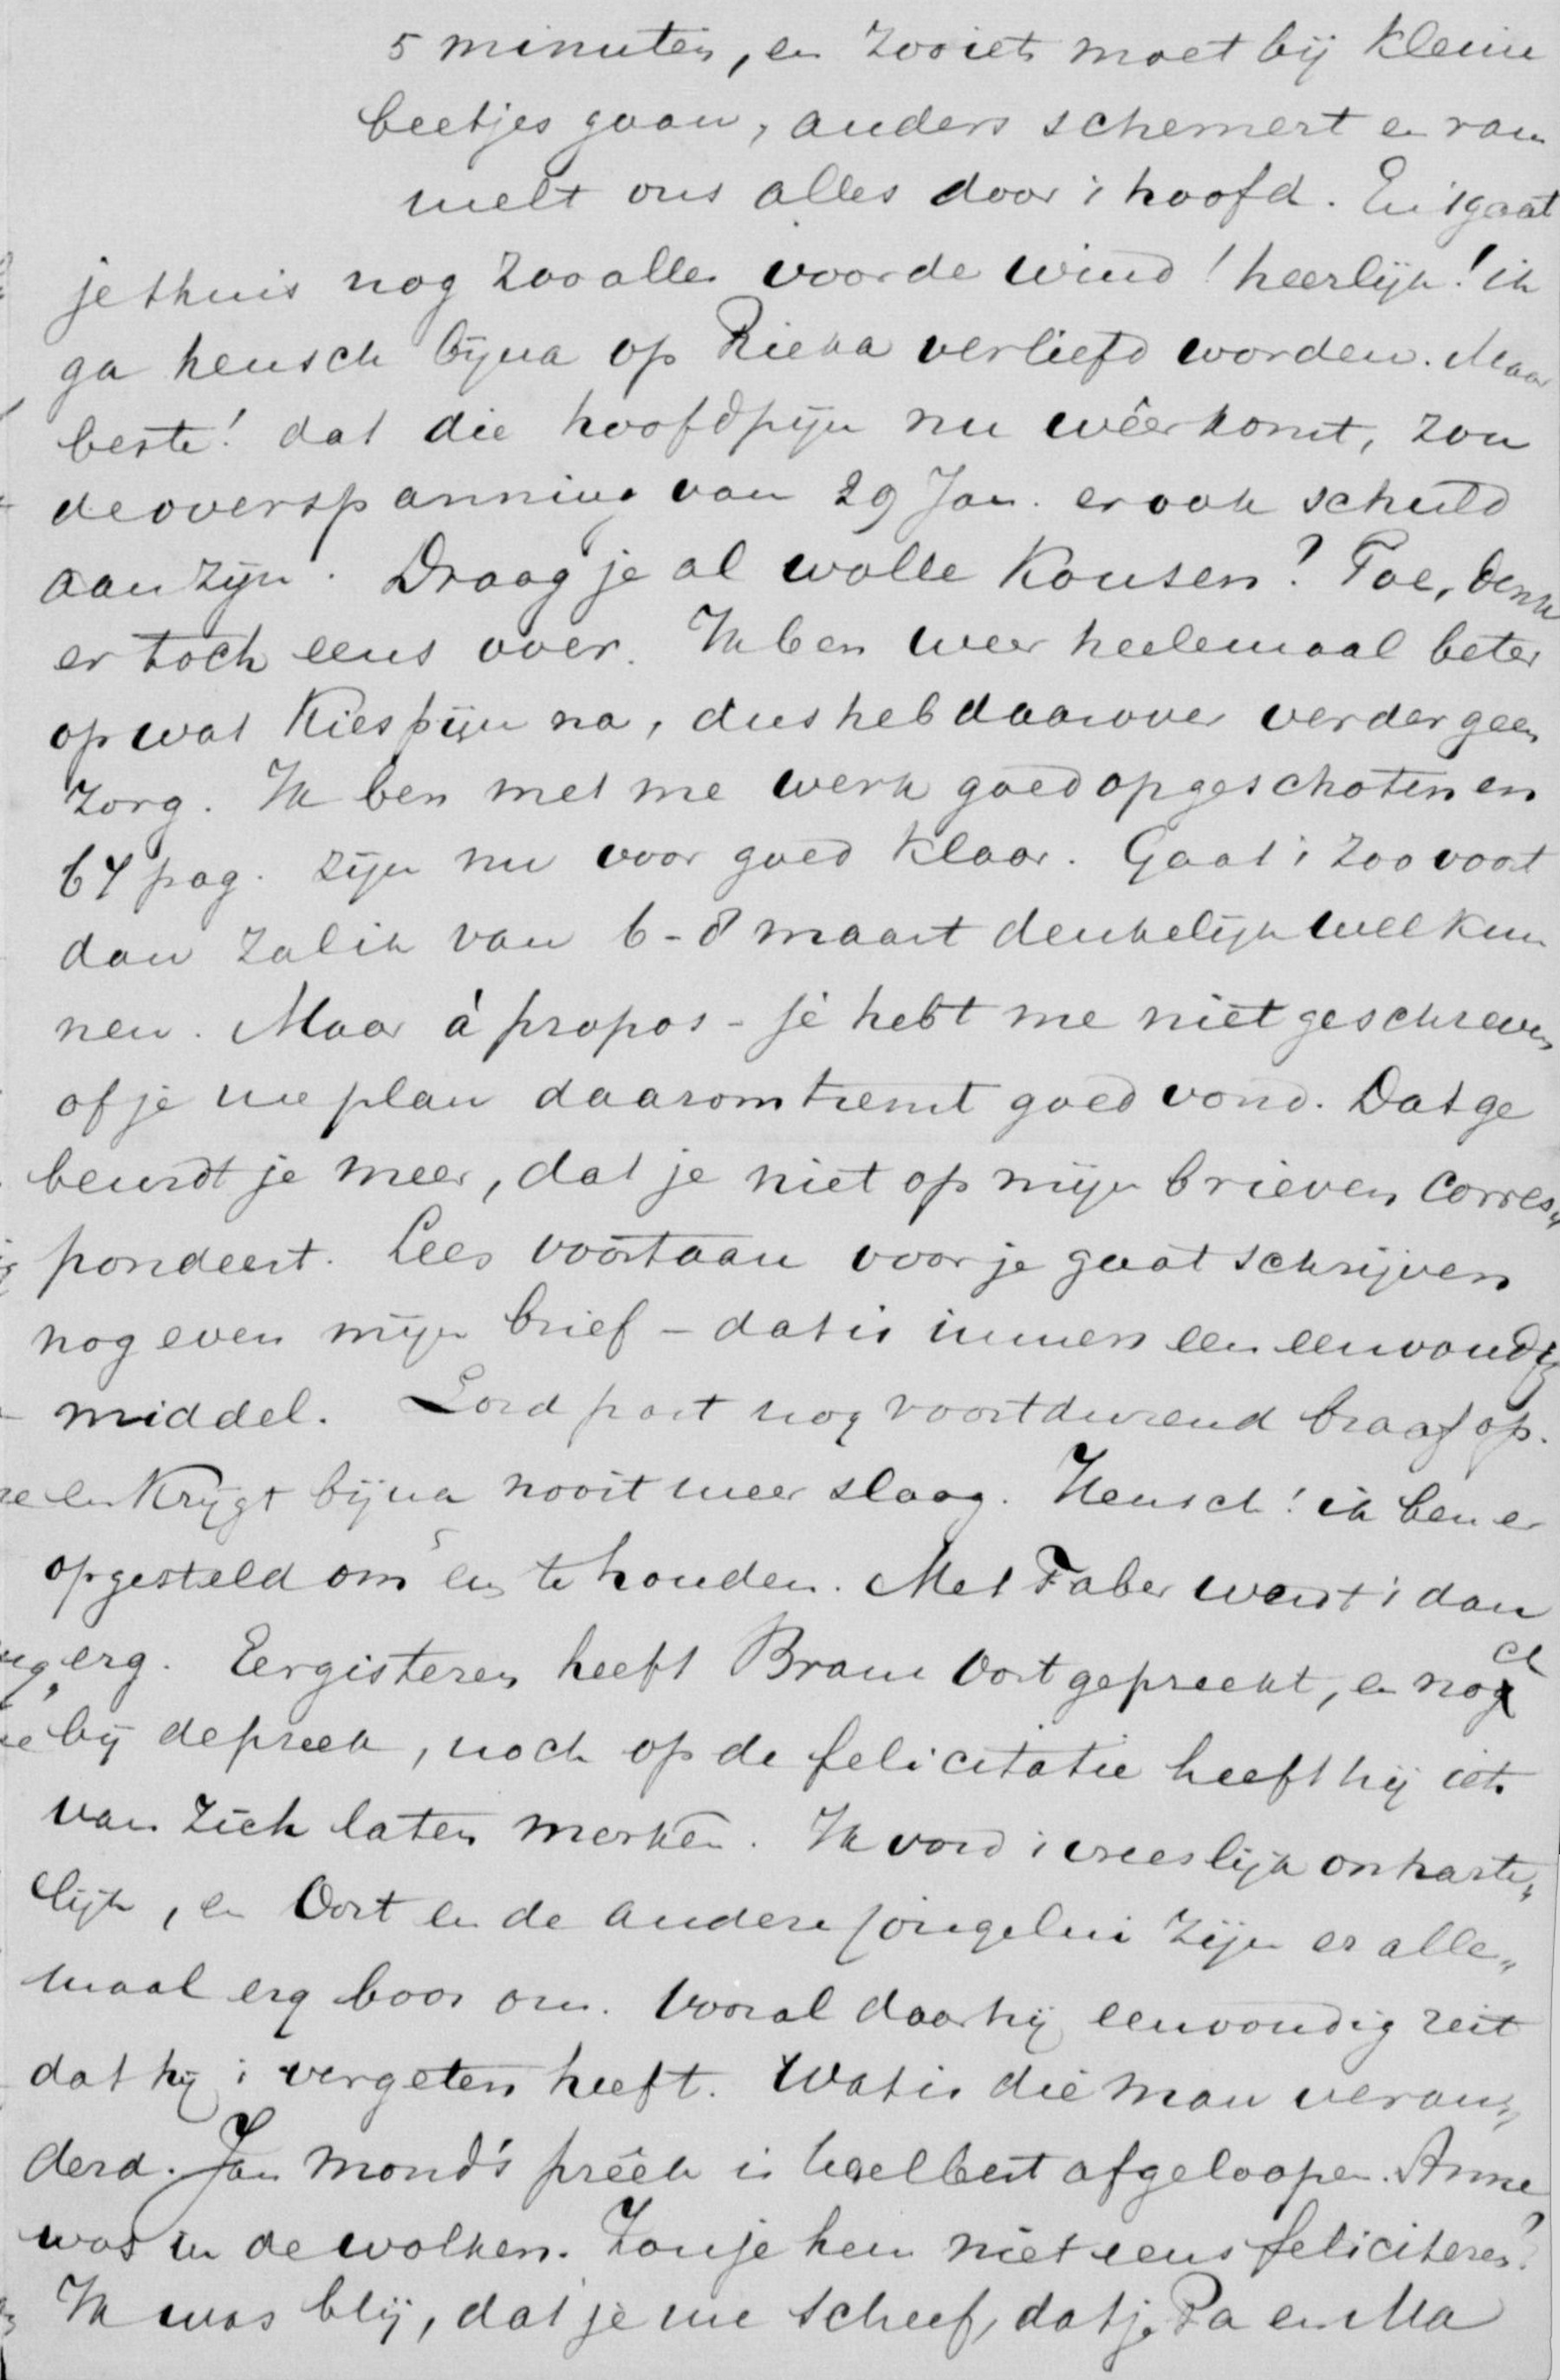 5 minuten, en zooiets moet bij kleine
beetjes gaan, anders schemert en ram
melt ons alles door 't hoofd. En 't gaat
je thuis nog zoo alles voor de wind! heerlijk! ik
ga heusch bijna op Rieka verliefd worden. Maar
beste! dat die hoofdpijn nu wêerkomt, zou
de overspanning van 29 Jan. er ook schuld
aan zijn. Draag je al wolle Kousen? Toe, denk
er toch eens over. Ik ben weer heelemaal beter
op wat Kiespijn na, dus heb daarover verder geen
zorg. Ik ben met me werk goed opgeschoten en
64 pag. zijn nu voor goed klaar. Gaat 't zoo voort
dan zal ik van 6-8 maart denkelijk wel kun
nen. Maar à propos - je hebt me niet geschreven
of je me plan daaromtrent goed vond. Dat ge
beurdt je meer, dat je niet op mijn brieven corres„
pondeert. Lees voortaan voor je gaat schrijven
nog even mijn brief - dat is immers een eenvoudig
middel. Lord past nog voortdurend braaf op.
en Krijgt bijna nooit meer slaag. Heusch! ik ben er
opgesteld om 's en te houden. Met Faber werdt 't dan
erg. Eergisteren heeft Bram Oort gepreekt, en noch
bij de preek, noch op de felicitatie heeft hij iets
van zich laten merken. Ik vond 't vreeslijk onharte„
lijk, en Oort en de andere jongelui zijn er alle„
maal erg boos om. Vooral daar hij eenvoudig zeit
dat hij 't vergeten heeft. Wat is die man veran„
derd. Jan Mond's prêek is heel best afgeloopen. Anne
was in de wolken. Zou je hen niet eens feliciteren?
Ik was blij, dat je me schreef, dat je Pa en Ma